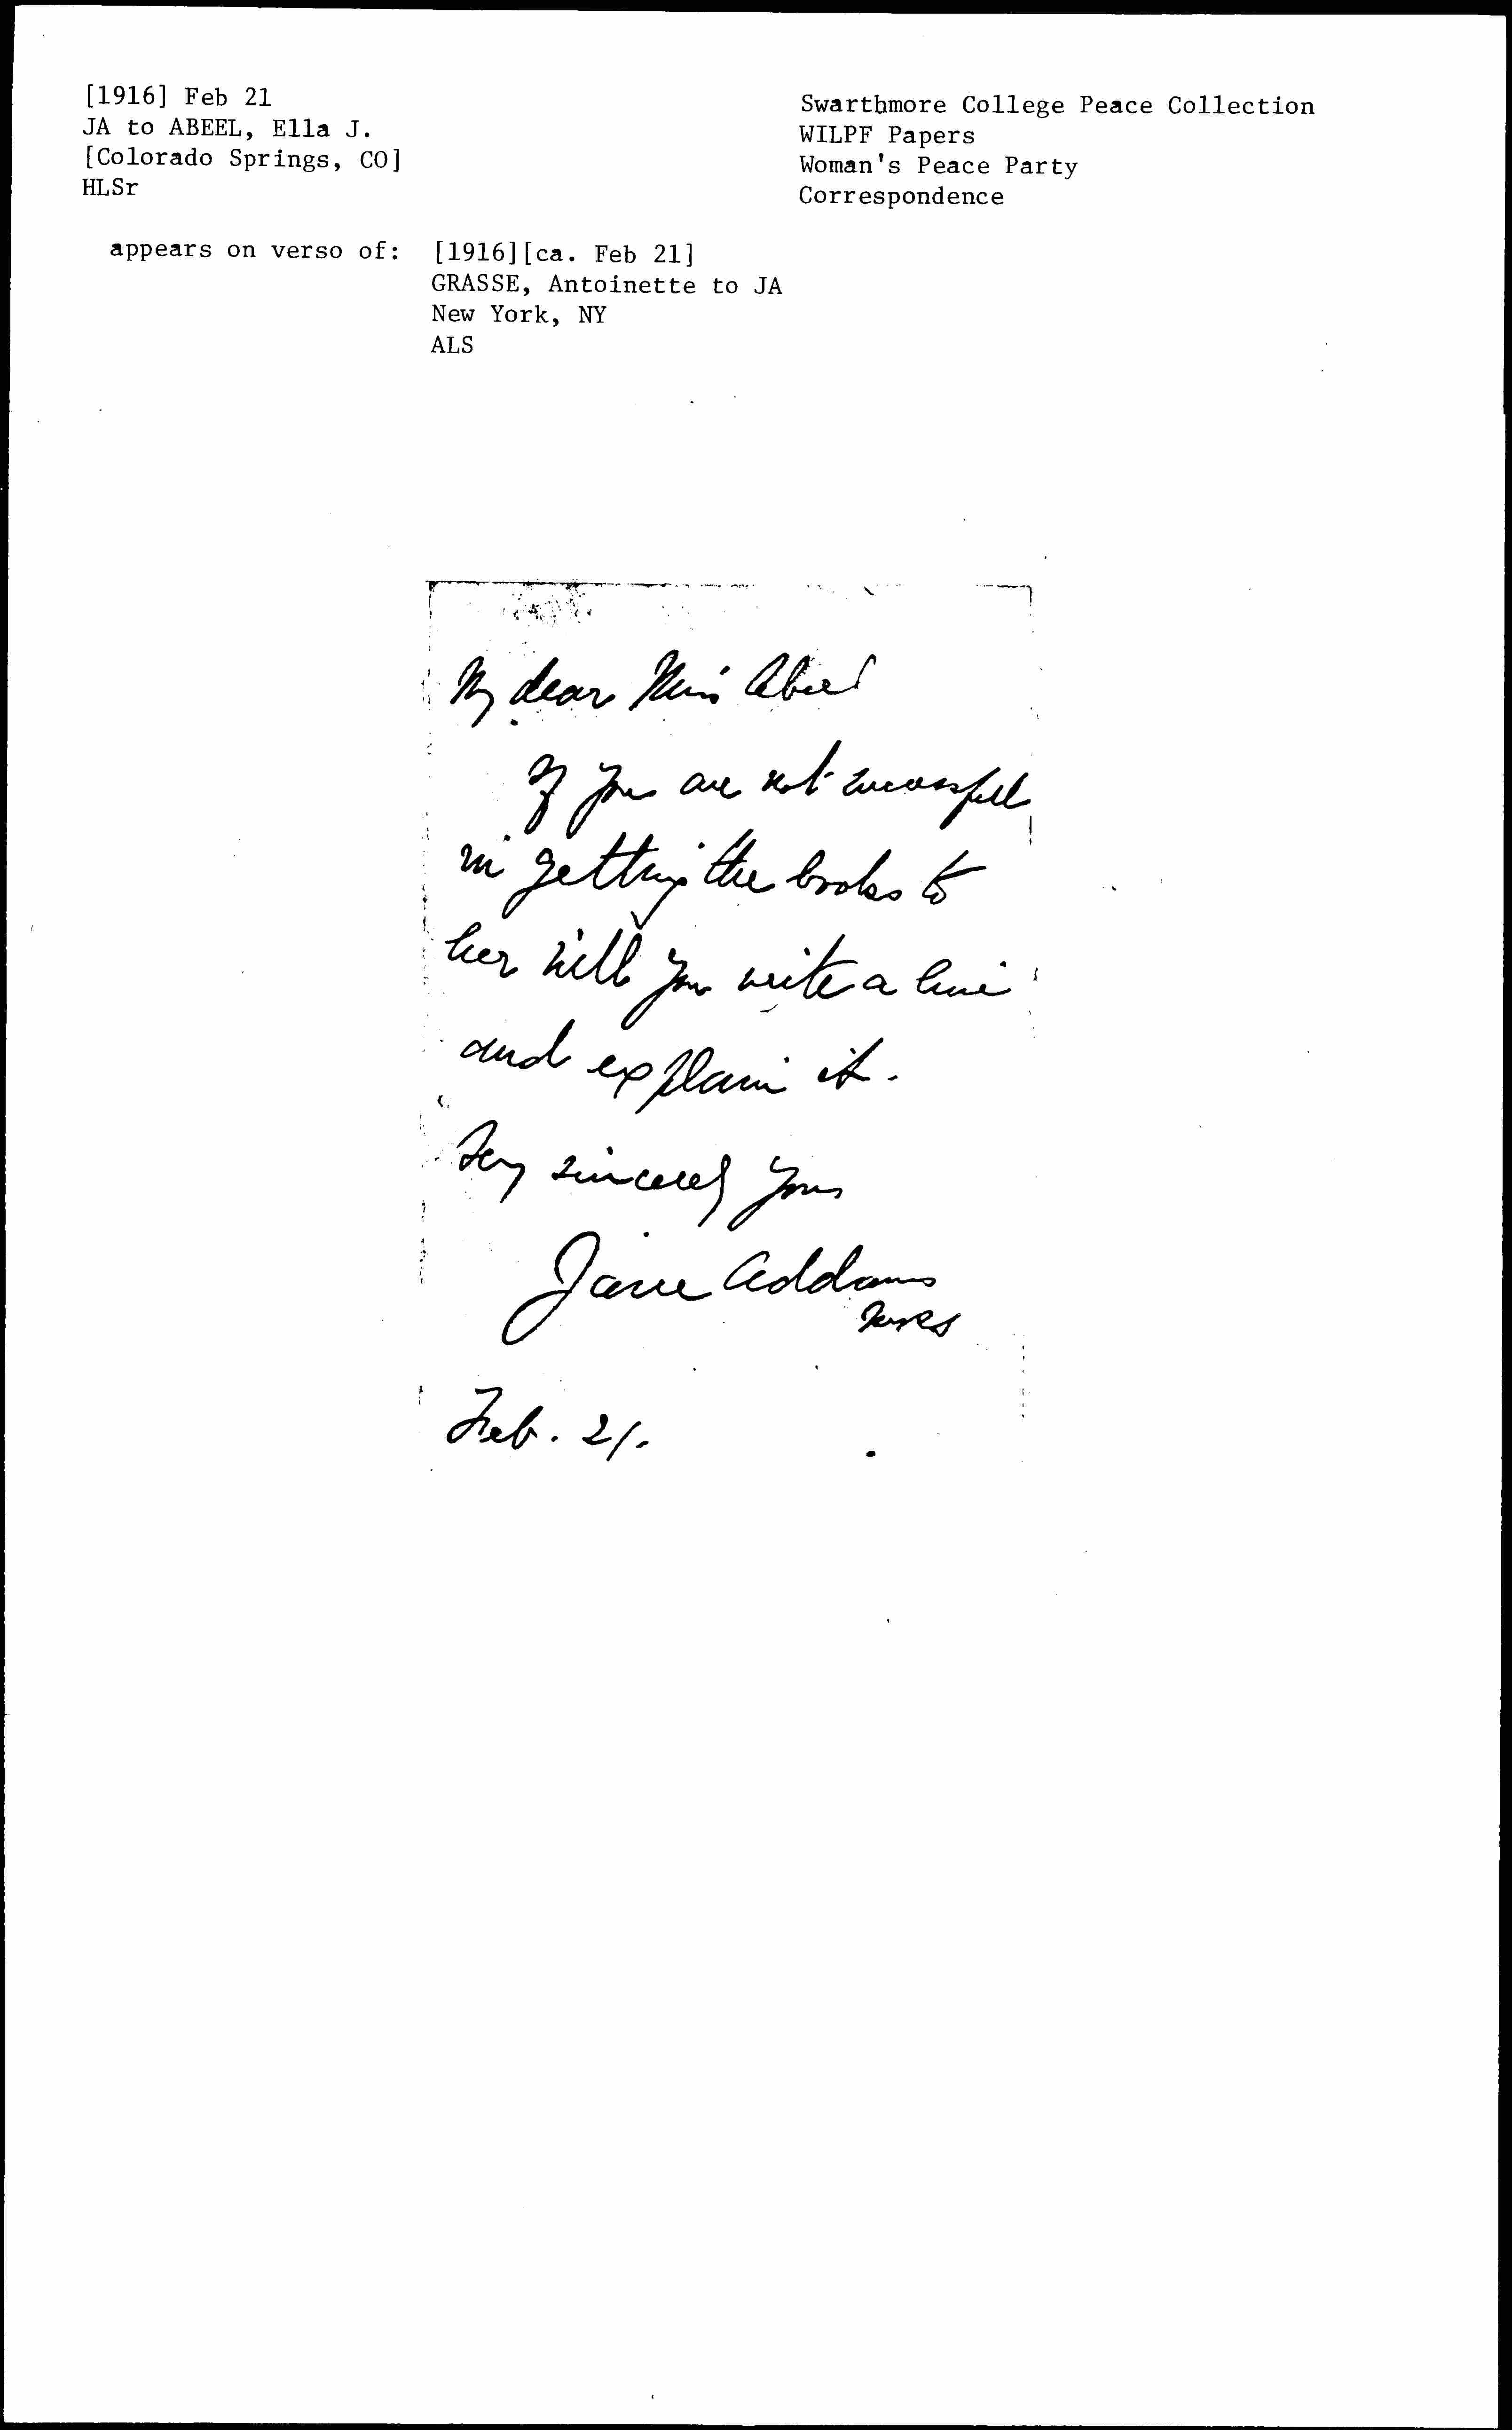 [1916] Feb 21
JA to ABEEL, Ella J.
[Colorado Springs, CO]
HLSr
Swarthmore College Peace Collection
WILPF Papers
Woman's Peace Party
Correspondence
appears on verso of: [1916][ca. Feb 21]
GRASSE, Antoinette to JA
New York, NY
ALS
My dear Miss Abeel
If you are not successful
in getting the books to
her will you write a line
and explain it.
Very sincerely yours
Jane Addams
Feb. 21.